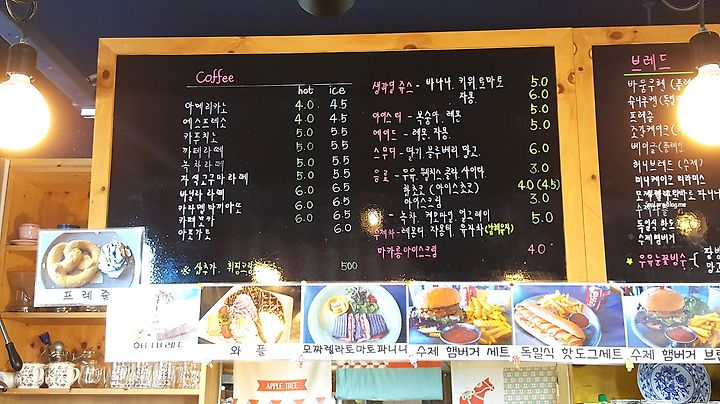 Coffee
hot ice
아메리카노 4.0 4.5
에스프레소 4.0 4.5
카푸치노 5.0 5.5
카페라떼 5.0 5.5
녹차라떼 5.0 5.5
자색고구마라떼 5.0 5.5
바닐라라떼 6.0 6.5
카라멜마끼아또 6.0 6.5
카페모카 6.0 6.5
아포가토 6.0
※ 샷추가. 휘핑크림 500
생과일 쥬스 - 바나나. 키위. 토마토 5.0
자몽. 6.0
아이스티 - 복숭아. 레몬 5.0
에이드 - 레몬. 자몽.
스무디 - 딸기. 블루베리. 망고. 6.0
음료 - 우유. 웰치스. 콜라. 사이다 3.0
핫쵸코 (아이스쵸코) 4.0 (4.5)
아이스크림 3.0
- 녹차. 캐모마일. 얼그레이 5.0
수제차 - 레몬티. 자몽티. 유자차
마카롱아이스크림 4.0
브레드
프레즐
허니브레드 (수제)
미니케이크 티라미스
수제햄버거
★ 우유눈꽃빙수
프레즐
허니브레드
와플
모짜렐라토마토파니니
수제 햄버거 세트
독일식 핫도그세트
수제 햄버거 브런
APPLE TREE